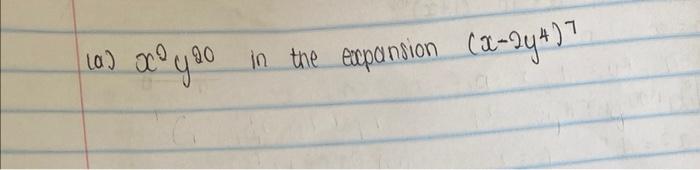 (a) x²y²⁰ in the expansion (x-2y⁴)⁷